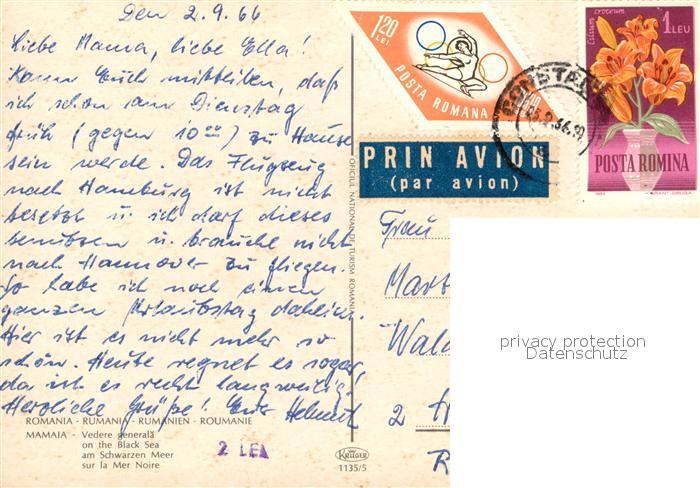 Den 2.9.66
Liebe Mama, liebe Ella!
Kann Euch mitteilen, daß
ich schon am Dienstag
früh (gegen 10⁰⁰) zu Hause
sein werde. Das Flugzeug
nach Hamburg ist nicht
besetzt u. ich darf dieses
benutzen u. brauche nicht
nach Hannover zu fliegen.
So habe ich noch einen
ganzen Urlaubstag daheim.
Hier ist es nicht mehr so
schön. Heute regnet es sogar,
da ist es recht langweilig!
Herzliche Grüße! Euer Helmut
ROMANIA - RUMANIA - RUMÄNIEN - ROUMANIE
MAMAIA - Vedere generală
on the Black Sea
am Schwarzen Meer
sur la Mer Noire
2 LEI
KRÜGER
1135/5
OFICIUL NATIONAL DE TURISM ROMANIA
1,20
LEI
POSTA ROMANA
PRIN AVION
(par avion)
CONSTANTA
Lilium croceum
1 LEU
POSTA ROMINA
Frau
Mart
Wald
2 H
R
privacy protection
Datenschutz